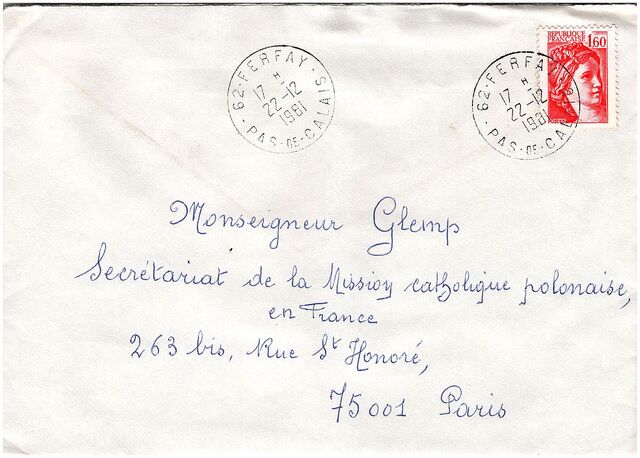 62-FERFAY
17 H
22-12
1981
PAS-DE-CALAIS
62-FERFA
17 H
22-12
1981
PAS-DE-CAL
REPUBLIQUE
FRANÇAISE
1,60
Monseigneur Glemp
Secrétariat de la Mission catholique polonaise,
en France
263 bis, Rue St Honoré,
75001 Paris